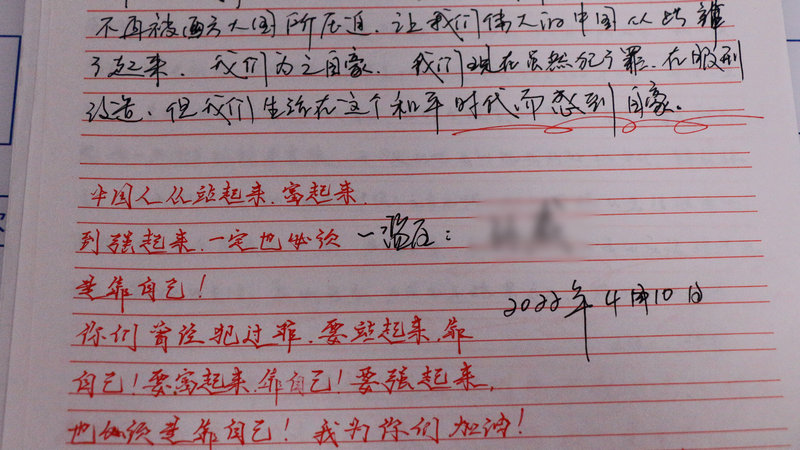 不再被西方大国所压迫，让我们伟大的中国从此雄
了起来，我们为之自豪。我们现在虽然犯了罪，在服刑
改造，但我们生活在这个和平时代而感到自豪。
中国人从站起来、富起来、
到强起来，一定也必须
是靠自己！
一监区：
2022年4月10日
你们曾经犯过罪，要站起来，靠
自己！要富起来，靠自己！要强起来，
也必须是靠自己！我为你们加油！